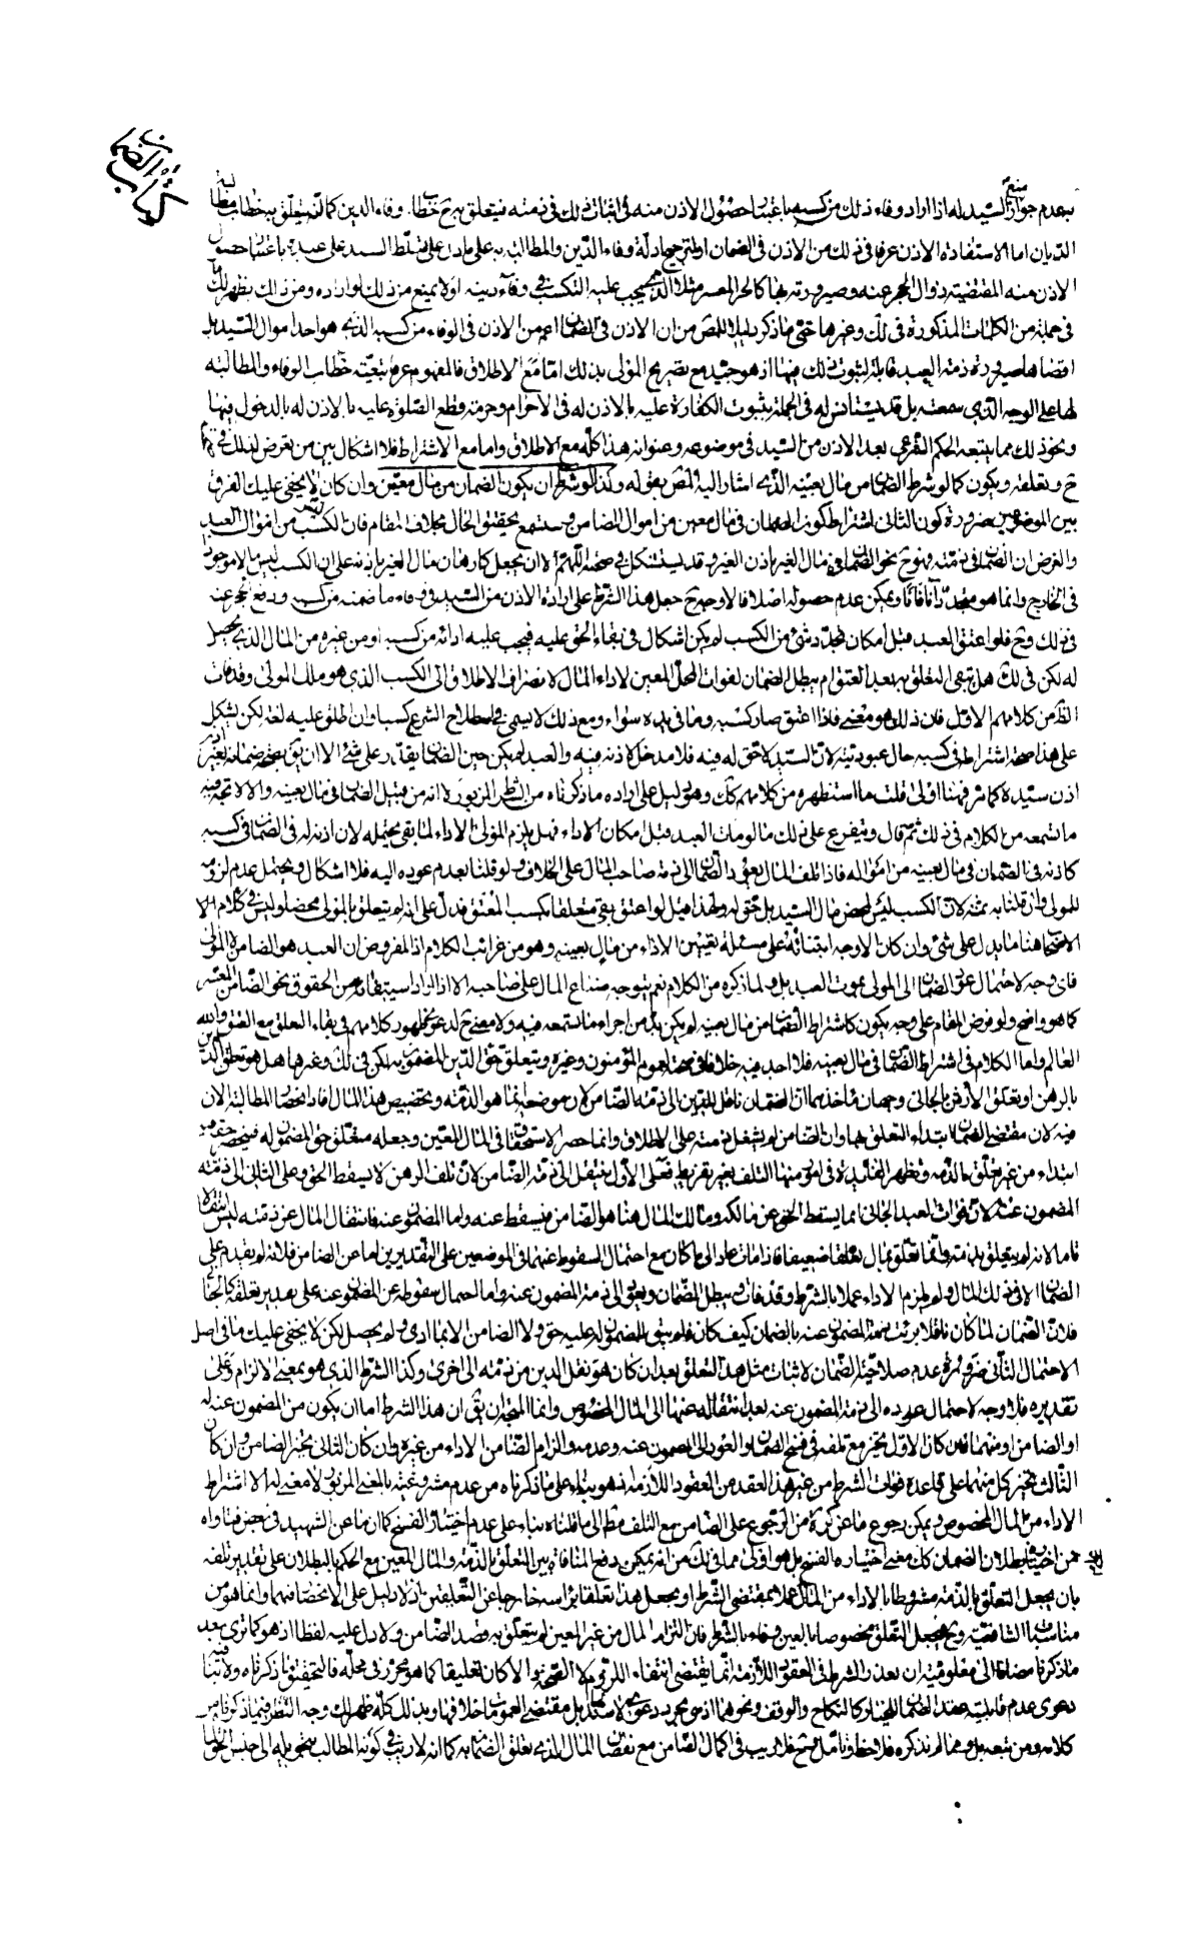 كتاب الضمان
بعدم جواز منع السيد له اذا اراد وفاء ذلك من كسبه باعتبار حصول الاذن منه في اثبات ذلك في ذمته فيتعلق به ح خطاب وفاء الدين كما انه يتعلق به خطاب مطالبة
الديان اما لاستفادة الاذن عرفا في ذلك من الاذن في الضمان او لترجيح ادلة وفاء الدين والمطالبة به على ما دل على تسلط السيد على عبده باعتبار حصول
الاذن منه المقتضية زوال الحجر عنه وصيرورته بها كالحر المعسر مثلا الذي يجب عليه التكسب في وفاء دينه او لا يمنع من ذلك لو اراده ومن ذلك يظهر لك ما
في جملة من الكلمات المذكورة في ذلك وغيرها حتى ما ذكر دليلا للمص من ان الاذن في الضمان اعم من الاذن في الوفاء من كسبه الذي هو احد اموال السيد بل
اقصاها صيرورة ذمة العبد قابلة لثبوت ذلك فيها اذ هو جيد مع تصريح المولى بذلك اما مع الاطلاق فالمفهوم عرفا تبعية خطاب الوفاء والمطالبة
لها على الوجه الذي سمعته بل قد يستانس له في الجملة بثبوت الكفارة عليه بالاذن له في الاحرام وحرمة قطع الصلوة عليه بالاذن له بالدخول فيها
ونحو ذلك مما يتبعه الحكم الشرعي بعد الاذن من السيد في موضوعه وعنوانه هذا كله مع الاطلاق واما مع الاشتراط فلا اشكال بين من تعرض لذلك في
ح وتعلقه ويكون كما لو شرط الضمان من مال بعينه الذي اشار اليه المص بقوله وكذا لو شرط ان يكون الضمان من مال معين وان كان لا يخفى عليك الفرق
بين الموضوعين ضرورة كون الثاني اشتراط كون الضمان في مال معين من اموال الضامن وستسمع تحقيق الحال بخلاف المقام فان الكسب ليس من اموال العبد
والفرض ان الضمان في ذمته فهو ح نحو الضمان في مال الغير باذن الغير وقد يستشكل في صحته اللهم الا ان يجعل كارهان مال الغير باذنه على ان الكسب ليس مالا موجودا
في الخارج وانما هو متجدد آنا فآنا ويمكن عدم حصوله اصلا فالاوجه ح حمل هذا الشرط على ارادة الاذن من السيد في وفاء ما ضمنه من كسبه ورفع الحجر عنه
في ذلك وح فلو اعتق العبد قبل امكان تجدد شيء من الكسب لم يكن اشكال في بقاء الحق عليه فيجب عليه ادائه من كسبه او من غيره من المال الذي يحصل
له لكن في لك هل يبقى التعلق به بعد العتق ام يبطل الضمان لفوات المحل المعين لاداء المال لانصراف الاطلاق الى الكسب الذي هو ملك المولى وقد فات
الظ من كلامهم الاول فان ذلك هو معنى فاذا اعتق صار كسبه وما في يده سواء ومع ذلك لا يسمى في اصطلاح الشرع كسبا وان اطلق عليه لغة لكن يشكل
على هذا صحة اشتراطه في كسبه حال عبوديته لان السيد لا حق له فيه فلا مدخل لاذنه فيه والعبد لم يكن حين الضمان يقدر على شيء الا ان يق بصحة ضمانه لغير
اذن سيده كما مر فهنا اولى قلت ما استظهره من كلامهم كك وهو دليل على ارادة ما ذكرناه من الشرط المزبور لا انه من قبيل الضمان في مال بعينه والا لاتجه فيه
ما تسمعه من الكلام في ذلك ثم قال ويتفرع على ذلك ما لو مات العبد قبل امكان الاداء فهل يلزم المولى الاداء لما بقي يحتمله لان اذنه له في الضمان في كسبه
كاذنه في الضمان في مال بعينه من امواله فاذا تلف المال يعود الضمان الى ذمة صاحب المال على الخلاف ولو قلنا بعدم عوده اليه فلا اشكال ويحتمل عدم لزومه
للمولى وان قلنا به ثمة لان الكسب ليس لمحض مال السيد بل حق له ولهذا قيل لو اعتق بقي متعلقا بكسب المعتق فدل على انه لم يتعلق بالمولى محضا وليس في كلام
الاصحاب هنا ما يدل على شيء وان كان الاوجه ابتنائه على مسئلة تعيين الاداء من مال بعينه وهو من غرائب الكلام اذ المفروض ان العبد هو الضامن لا المولى
فاي وجه لاحتمال عود الضمان الى المولى بموت العبد بل ولما ذكره من الكلام نعم يتوجه ضياع المال على صاحبه الا اذا اراد استيفائه من الحقوق نحو الضامن المعسر
كما هو واضح ولو فرض المقام على وجه يكون كاشتراط الضمان من مال بعينه لم يكن بد من اجراء ما تسمعه فيه ولا معنى ح لدعوى ظهور كلامهم في بقاء التعلق مع العتق والله
العالم واما الكلام في اشتراط الضمان في مال بعينه فلا اجد فيه خلافا في صحته لعموم المؤمنون وغيره ويتعلق حق الدين للمضمون له لكن في لك وغيرها هل هو تعلق الدين
بالرهن او تعلق الارش بالجاني وجهان مأخذهما ان الضمان ناقل للدين الى ذمة الضامن لان موضعه انما هو الذمة وتخصيص هذا المال افاد انحصار المطالبة لان
فيه لان مقتضى الضمان ابتداء التعلق بهما وان الضامن لم يشغل ذمته على الاطلاق وانما حصر الاستحقاق في المال المعين وجعله متعلق حق المضمون له فينحصر حقه فيه
ابتداء من غير تعلق بالذمة وتظهر الفايدة في امور منها التلف بغير تفريط فعلى الاول ينتقل الى ذمة الضامن لان تلف الرهن لا يسقط الحق وعلى الثاني الى ذمة
المضمون عنه لان فوات العبد الجاني انما يسقط الحق عن مالكه ومالك المال هنا هو الضامن فيسقط عنه واما المضمون عنه فانتقال المال عن ذمته ليس انتقالا
تاما لانه لم يتعلق بذمته وانما تعلق بمال تعلقا ضعيفا فاذا مات عاد الى ما كان مع احتمال السقوط عنهما في الموضعين على التقديرين اما عن الضامن فلانه لم يقدم على
الضمان الا في ذلك المال ولم يلزم الاداء عملا بالشرط وقد فات ويبطل الضمان ويعود الى ذمة المضمون عنه واما احتمال سقوطه عن المضمون عنه على تقدير تعلقه كالجناية
فلان الضمان لما كان ناقلا برئت ذمة المضمون عنه بالضمان كيف كان فلم يبق للمضمون له عليه حق ولا الضامن لانه ما ادى ولم يحصل لكن لا يخفى عليك ما في اصل
الاحتمال الثاني ضرورة عدم صلاحية الضمان لاثبات مثل هذا التعلق بعد ان كان هو نقل الدين من ذمته الى اخرى وكذا الشرط الذي هو بمعنى الالزام وعلى
تقديره فلا وجه لاحتمال عوده الى ذمة المضمون عنه بعد انتقاله عنها الى المال المخصوص وانما المتجه ان يق ان هذا الشرط اما ان يكون من المضمون عنه له
او الضامن او منهما فان كان الاول يخير مع تلفه في فسخ الضمان والعود الى المضمون عنه وعدمه والزام الضامن الاداء من غيره وان كان الثاني يخير الضامن وان كان
الثالث يخير كل منهما على قاعدة فوات الشرط من غير هذا العقد من العقود اللازمة اذ هو بناء على ما ذكرناه من عدم مشروعيته بالمعنى المزبور لا معنى له الا اشتراط
الاداء من المال المخصوص ويمكن رجوع ما عن كرة من الرجوع على الضامن مع التلف مطلقا الى ما قلناه بناء على عدم اختيار الفسخ كما ان ما عن الشهيد في بعض فتاواه
من اختيار بطلان الضمان كك معنى اختياره الفسخ بل هو اولى مما في لك من انه يمكن دفع المنافاة بين التعلق بالذمة والمال المعين مع الحكم بالبطلان على تقدير تلفه
بان يجعل التعلق بالذمة مشروطا بالاداء من المال عملا بمقتضى الشرط او يجعل هذا تعلقا برأسه خارجا عن التعلقين اذ لا دليل على الانحصار فيهما وانما هو من
مناسبات الشافعية وح يجعل التعلق مخصوصا بالعين وفاء بالشرط فان التزام المال من غير المعين لم يتعلق به قصد الضامن ولا دل عليه لفظا اذ هو كما ترى بعد
ما ذكرنا مضافا الى معلومية ان تعذر الشرط في العقود اللازمة انما يقتضي انتفاء اللزوم لا الصحة والا كان تعليقا كما هو محرر في محله فالتحقيق ما ذكرناه ولا ينافيه
دعوى عدم قابلية عقد الضمان للخيار كالنكاح والوقف ونحوهما اذ هو مجرد دعوى لا شاهد لها بل مقتضى العمومات خلافها وبذلك كله ظهر لك وجه النظر فيما ذكر فا س
كلامه ومن تبعه بل ومما لم نذكره فلاحظ وتامل وح فلا ريب في اكمال الضامن مع نقصان المال الذي تعلق الضمان به كما انه لا ريب في كونه المطالب بتحويله الى جنس الحق